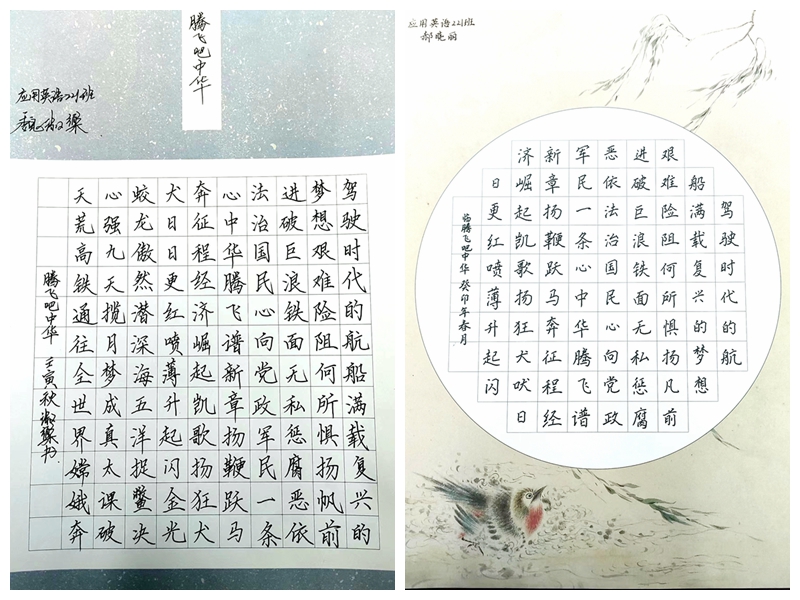 腾飞吧中华
应用英语221班
魏淑梁
驾驶时代的航船满载复兴的
梦想艰难险阻何所惧扬帆前
进破巨浪铁面无私惩腐恶依
法治国民心向党政军民一条
心中华腾飞谱新章扬鞭跃马
奔征程经济崛起凯歌扬狂犬
犬日日更红喷薄升起闪金光
蛟龙傲然潜深海五洋捉鳖决
心强九天揽月梦成真太课破
天荒高铁通往全世界嫦娥奔
腾飞吧中华 壬寅秋 淑梁书
应用英语221班
郝晓丽
驾驶时代的航
船满载复兴的梦想
艰难险阻何所惧扬凡前
进破巨浪铁面无私惩腐
恶依法治国民心向党政
军民一条心中华腾飞谱
新章扬鞭跃马奔征程经
济崛起凯歌扬狂犬吠日
日更红喷薄升起闪
临腾飞吧中华 癸卯年春月